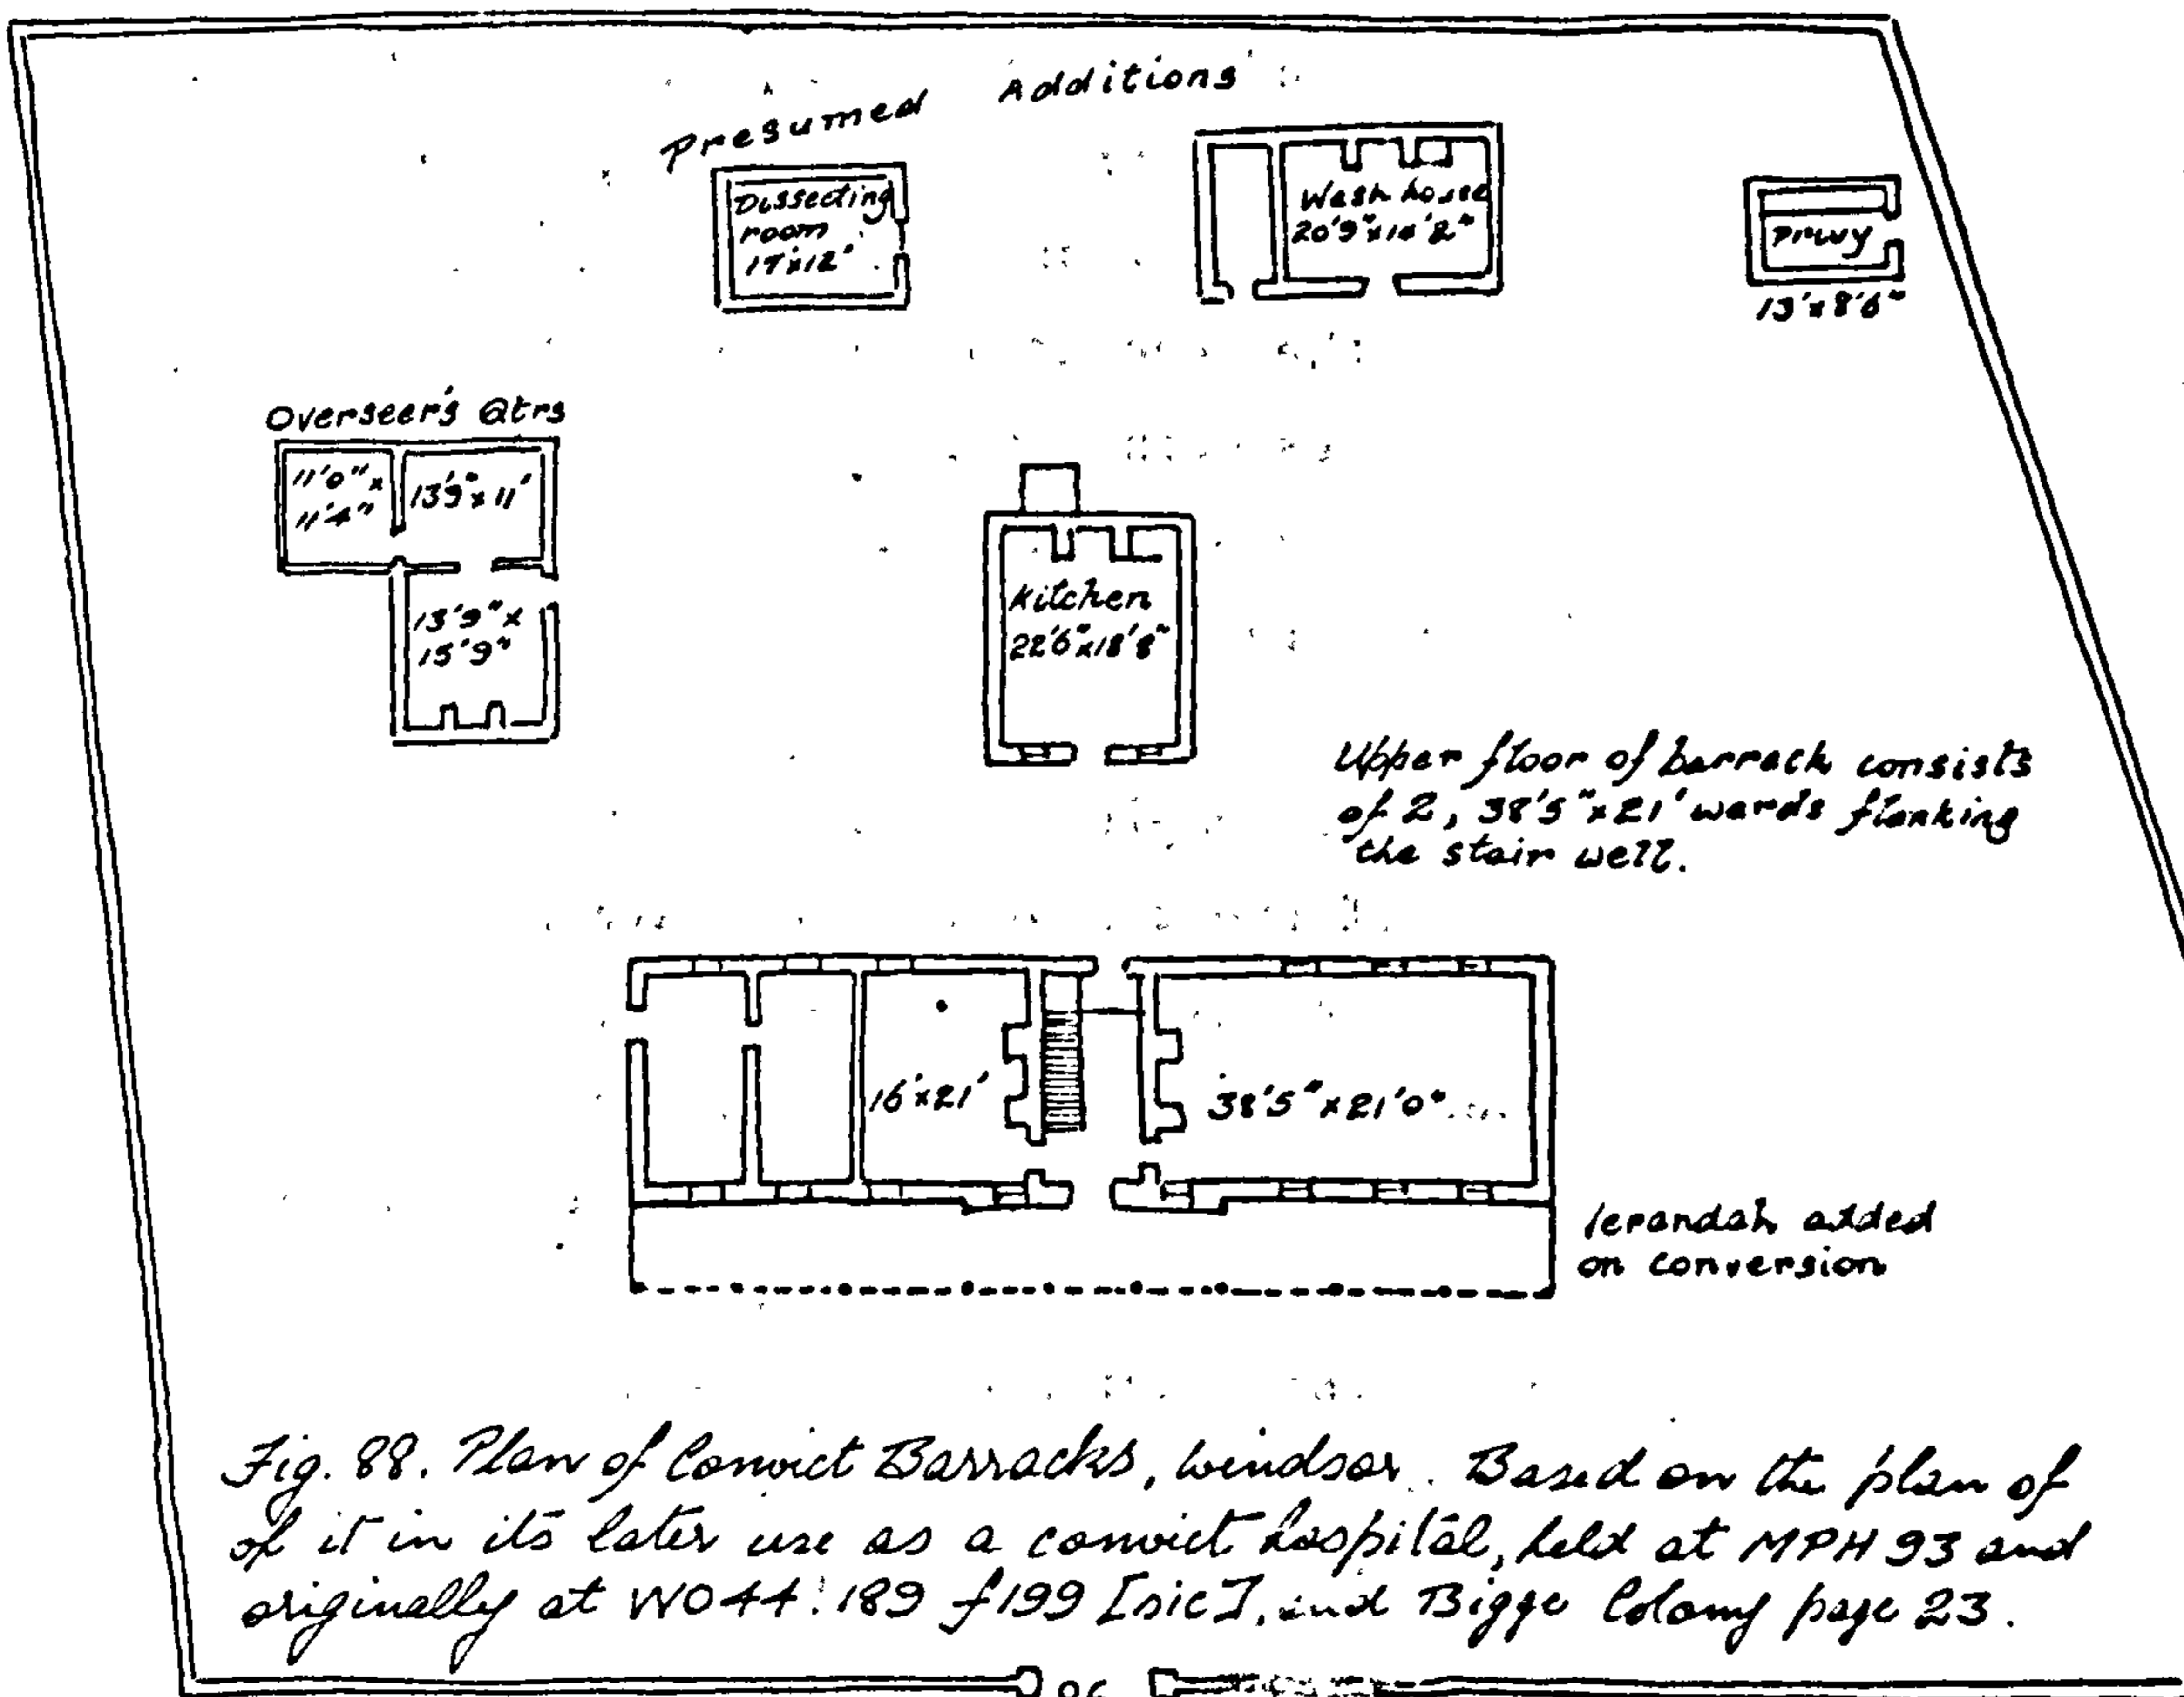 Presumed Additions
Dissecting
room
17'x12'
Wash house
20'9"x14'2"
Privy
13'x8'6"
Overseer's Qtrs
11'0"x
11'4"
13'9"x11'
13'9"x
15'9"
Kitchen
22'6"x18'8"
Upper floor of barrack consists
of 2, 38'5"x21' wards flanking
the stair well.
16'x21'
38'5"x21'0"
Verandah added
on conversion
Fig. 88. Plan of Convict Barracks, Windsor. Based on the plan of
of it in its later use as a convict hospital, held at MPH 93 and
originally at WO44:189 f199 [sic], and Bigge Colony page 23.